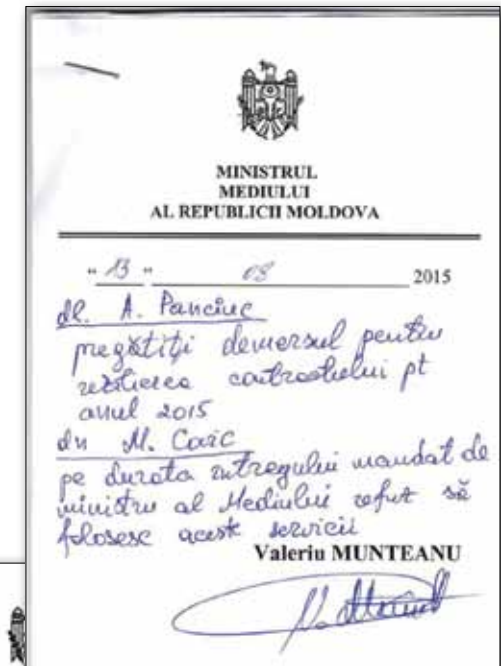 MINISTRUL
MEDIULUI
AL REPUBLICII MOLDOVA
" 13 " 08 2015
dl. A. Panciuc
pregătiți demersul pentru
rezilierea contractului pt
anul 2015
dn M. Caic
pe durata întregului mandat de
ministru al Mediului refuz să
folosesc aceste servicii
Valeriu MUNTEANU